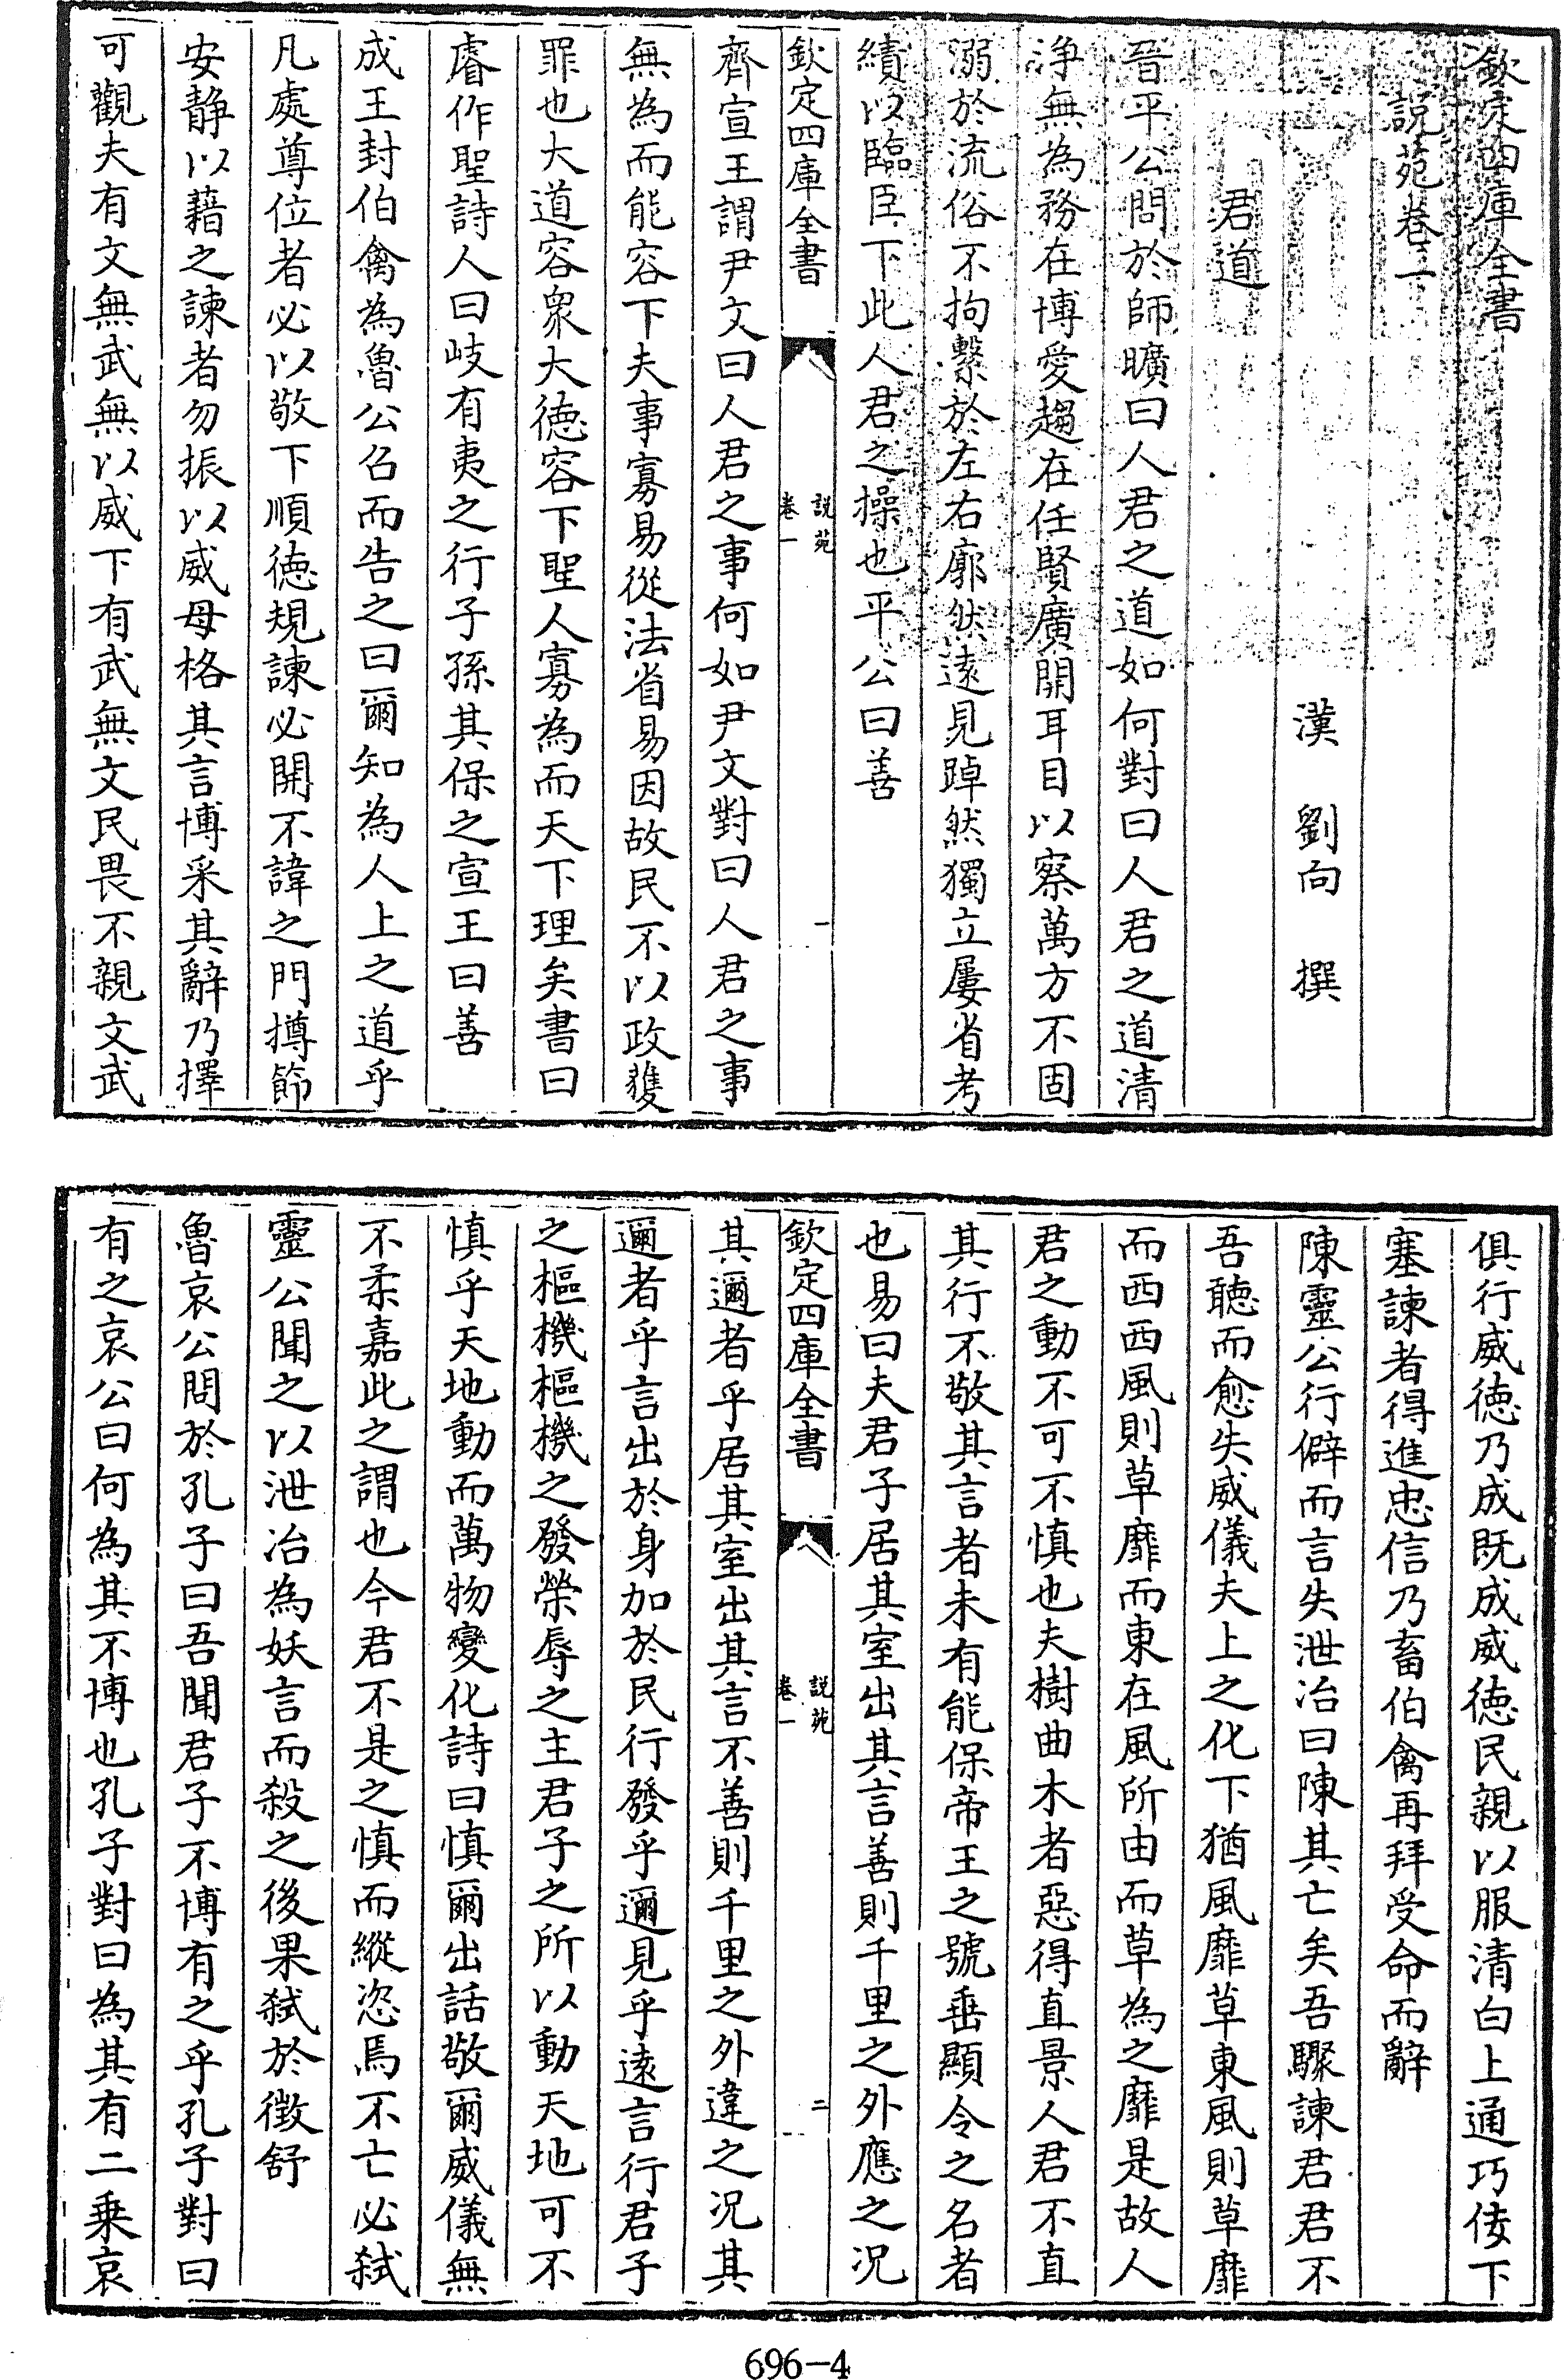 欽定四庫全書
説苑卷一
漢 劉向 撰
君道
晉平公問於師曠曰人君之道如何對曰人君之道清
淨無為務在博愛趨在任賢廣開耳目以察萬方不固
溺於流俗不拘繫於左右廓然遠見踔然獨立屢省考
績以臨臣下此人君之操也平公曰善
欽定四庫全書
説苑
卷一
一
齊宣王謂尹文曰人君之事何如尹文對曰人君之事
無為而能容下夫事寡易從法省易因故民不以政獲
罪也大道容衆大徳容下聖人寡為而天下理矣書曰
睿作聖詩人曰岐有夷之行子孫其保之宣王曰善
成王封伯禽為魯公召而告之曰爾知為人上之道乎
凡處尊位者必以敬下順徳規諫必開不諱之門撙節
安靜以藉之諫者勿振以威毋格其言博采其辭乃擇
可觀夫有文無武無以威下有武無文民畏不親文武
俱行威徳乃成既成威徳民親以服清白上通巧佞下
塞諫者得進忠信乃畜伯禽再拜受命而辭
陳靈公行僻而言失泄冶曰陳其亡矣吾驟諫君君不
吾聽而愈失威儀夫上之化下猶風靡草東風則草靡
而西西風則草靡而東在風所由而草為之靡是故人
君之動不可不慎也夫樹曲木者惡得直景人君不直
其行不敬其言者未有能保帝王之號垂顯令之名者
也易曰夫君子居其室出其言善則千里之外應之况
欽定四庫全書
説苑
卷一
二
其邇者乎居其室出其言不善則千里之外違之况其
邇者乎言出於身加於民行發乎邇見乎遠言行君子
之樞機樞機之發榮辱之主君子之所以動天地可不
慎乎天地動而萬物變化詩曰慎爾出話敬爾威儀無
不柔嘉此之謂也今君不是之慎而縱恣焉不亡必弑
靈公聞之以泄冶為妖言而殺之後果弑於徴舒
魯哀公問於孔子曰吾聞君子不博有之乎孔子對曰
有之哀公曰何為其不博也孔子對曰為其有二乗哀
696-4